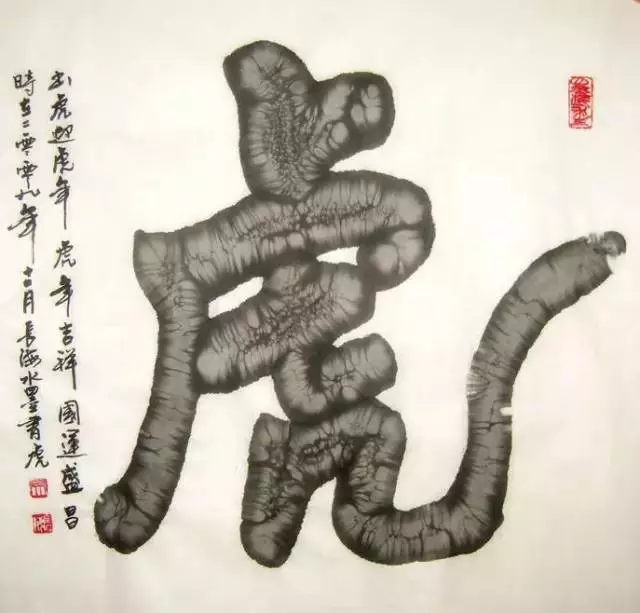 虎
出虎迎虎年 虎年吉祥 國運盛昌
時在二零零九年 十二月 長海水墨書虎